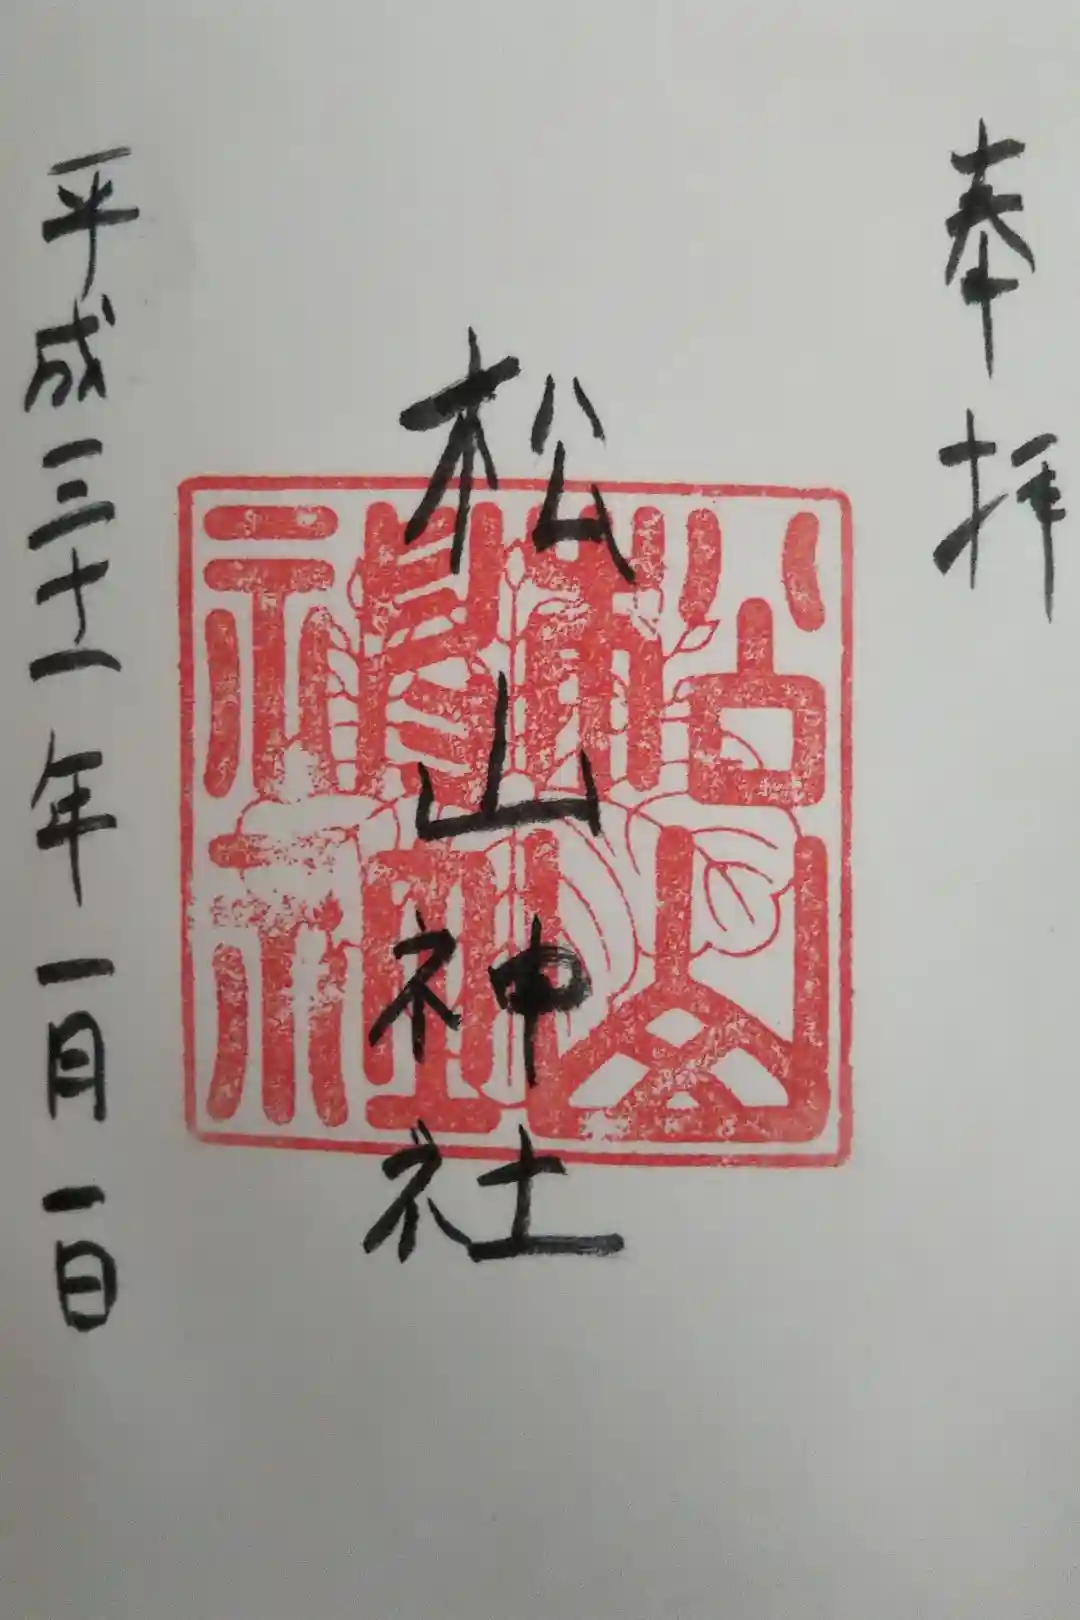 奉拝
松山神社
平成三十一年一月一日